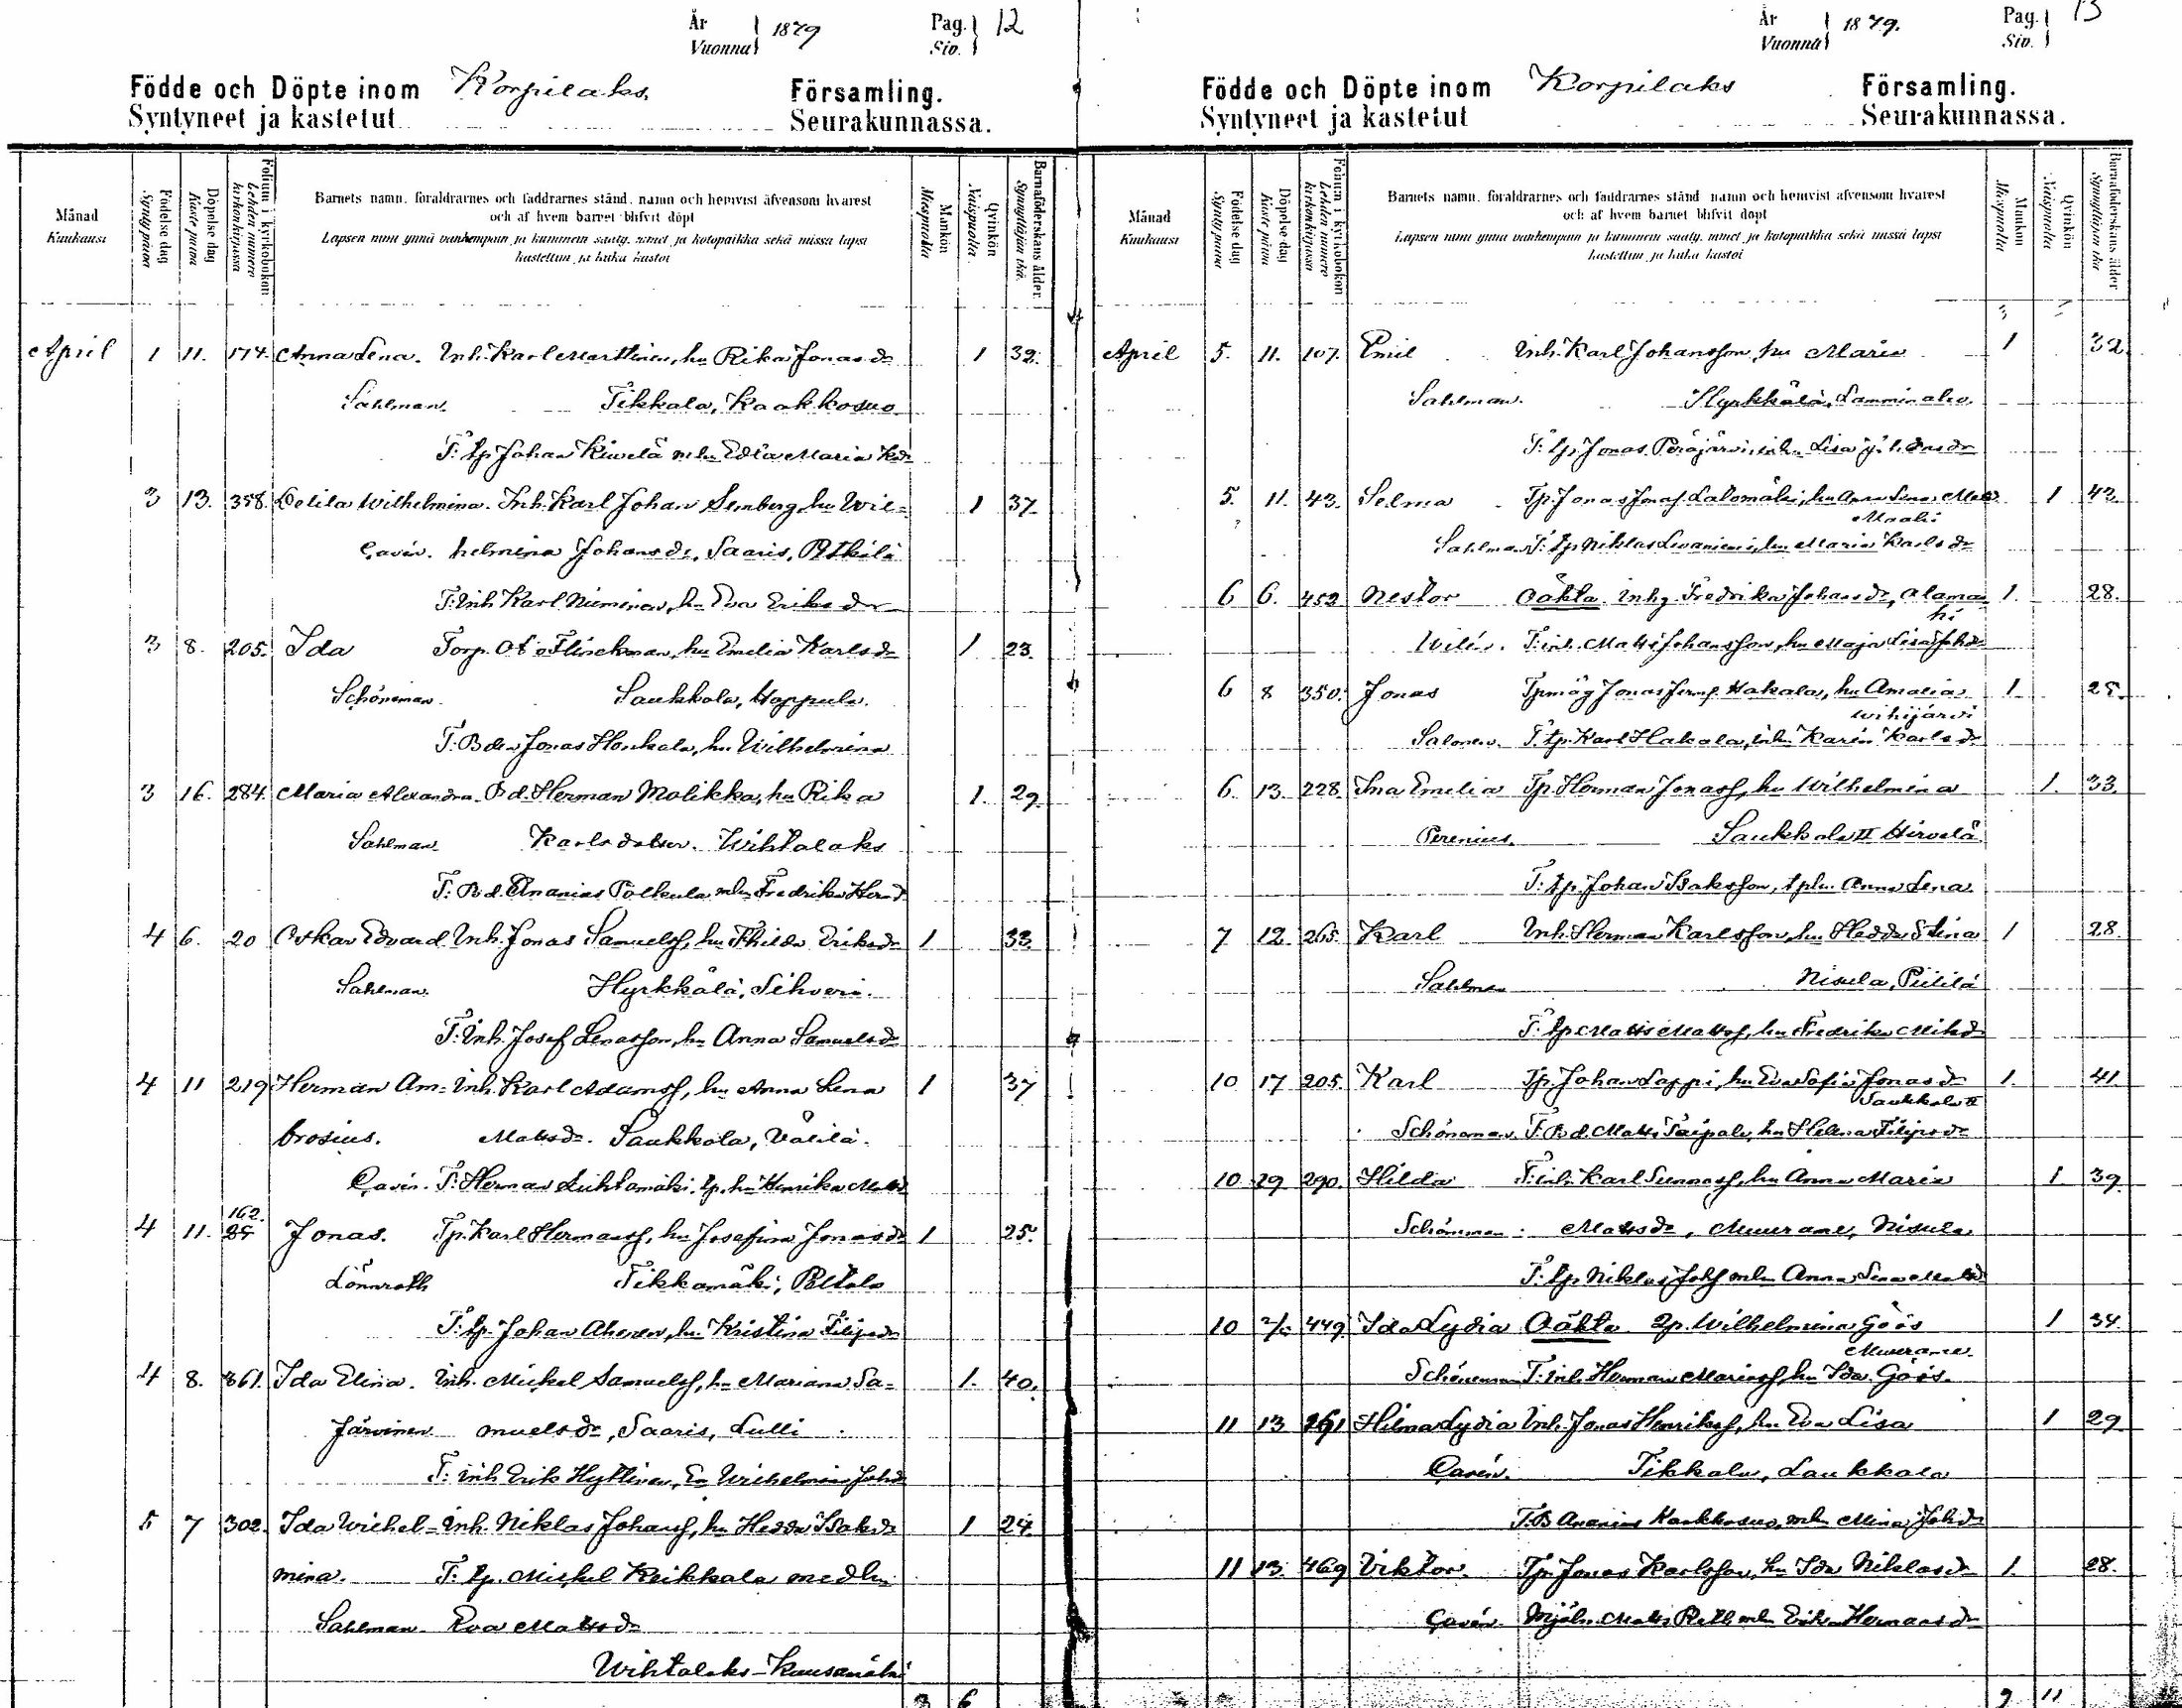 År Vuonna 1879 Pag. Siv. 12
Födde och Döpte inom Korpilaks Församling.
Syntyneet ja kastetut Seurakunnassa.
Månad Kuukausi
Födelse dag Synty päivä
Döpelse dag Kaste päivä
Folium i kyrkoboken Lehden numero kirkonkirjassa
Barnets namn, föräldrarnes och faddrarnes stånd, namn och hemvist äfvensom hvarest
och af hvem barnet blifvit döpt
Lapsen nimi ynnä vanhempain ja kummein sääty, nimet ja kotopaikka sekä missä lapsi
kastettiin ja kuka kastoi
Mankön Miespuolia
Qvinkön Vaispuolia
Barnaföderskans ålder Synnyttäjän ikä
April 1 11. 174. Anna Lena. Inh. Karl Marttinen, hu Rika Jonasdr 1 32.
Sahlman. Tikkala, Kaakkosuo
F: tp Johan Kiwelä mhu Edla Maria
3 13. 358. Delila Wilhelmina. Inh. Karl Johan Semberg, hu Wil= 1 37.
Cavén. helmina Johansdr, Saaris,
F: Inh Karl Nieminen, hu Eva Eriksdr
3 8. 205. Ida Torp. Flinckman, hu Emelia Karlsdr 1 23.
Schöneman Saukkola, Hoppula.
F: Bden Jonas Honkala, hu Wilhelmina
3 16. 284. Maria Alexandra. Bd. Herman Molikka, hu Rika 1. 29.
Sahlman Karlsdotter. Wihtalaks
F: Bd. Ananias mhu Fredrika
4 6. 20 Oskar Edvard. Inh. Jonas Samuelsf, hu Thilda Eriksdr 1 33.
Sahlman. Hyrkkälä, Sihveri.
F: Inh. Josef hu Anna Samuelsdr
4 11 219 Herman Am= Inh. Karl Adamsf, hu Anna Lena 1 37
brosius. Mattsdr. Saukkola, Välilä.
Cavén. F: Herman Lichtamäki, tp, hu Henrika
4 11. 162. Jonas. Tp. Karl Hermansf, hu Josefina Jonasdr 1 25.
Lönnroth Tikkamäki, Peltola
F: tp. Johan Ahonen, hu Kristina Filipsdr
4 8. 361. Ida Elina. Inh. Mickel Samuelsf, hu Mariana Sa= 1. 40.
Järvinen muelsdr, Saaris, Lulli
F: inh Erik Hyttinen, Wilhelmina
5 7 302. Ida Wilhel= Inh. Niklas Johansf, hu Hedda Isaksdr 1 24.
mina. F: tp. Mickel Keikkala med hu
Sahlman Eva Mattsdr
Wihtalaks-
6
År Vuonna 1879. Pag. Siv. 13
Födde och Döpte inom Korpilaks Församling.
Syntyneet ja kastetut Seurakunnassa.
Månad Kuukausi
Födelse dag Synty päivä
Döpelse dag Kaste päivä
Folium i kyrkoboken Lehden numero kirkonkirjassa
Barnets namn, föräldrarnes och faddrarnes stånd, namn och hemvist äfvensom hvarest
och af hvem barnet blifvit döpt
Lapsen nimi ynnä vanhempain ja kummein sääty, nimet ja kotopaikka sekä missä lapsi
kastettiin ja kuka kastoi
Mankön Miespuolia
Qvinkön Vaispuolia
Barnaföderskans ålder Synnyttäjän ikä
April 5. 11. 107. Emil Inh. Karl Johansson, hu Maria 1 32
Sahlman. Hyrkkälä, Lamminaho.
F: tp. Jonas Peräjärvi, Lisa
5. 11. 43. Selma Tp. Jonas Lalomäki, hu Anna Lena 1 42.
Sahlman F: tp Niklas hu Maria Karlsdr
6 6. 452 Nestor Oäkta Inhg. Fredrika Johansdr, Alamä 1. 28.
ki
Wilén. F: inh. Matts Johansson, hu Maja Lisa
6 8 350. Jonas Tpmåg Jonas Hakala, hu Amalia 1. 25.
Wihijärvi
Salonen. F: tp. Karl Hakala, Karin Karlsdr
6. 13. 228. Ina Emelia Tp. Herman Jonasf, hu Wilhelmina 1. 33.
Perenius. Saukkola II Hirvelä
F: tp. Johan Isaksson, Anna Lena
7 12. 265. Karl Inh. Herman Karlsson, hu Hedda Stina 1 28.
Sahlman Nisula, Piililä
F: tp. Matts Mattsf, hu Fredrika
10 17 205. Karl Tp. Johan Lappi, hu Eva Sofia Jonasdr 1. 41.
Saukkola II
Schöneman. F: Bd. Matts Taipale, hu Helena Filipsdr
10 29 290. Hilda F: inh. Karl hu Anna Maria 1 39.
Schöneman Mattsdr, Muurame, Nisula
F: tp. Niklas mhu Anna
10 449 Ida Lydia Oäkta Wilhelmina Göös 1 34.
Muurame.
Schöneman F: inh. Herman hu Ida Göös.
11 13 Hilma Lydia Inh. Jonas Henriksf, hu Eva Lisa 1 29
Cavén. Tikkala, Laukkala
F: B Ananias Kaakkosuo, mhu Mina
11 13. 469 Viktor. Tp. Jonas Karlsson, hu Ida Niklasdr 1. 28.
Cavén. Matts Hermansdr
11